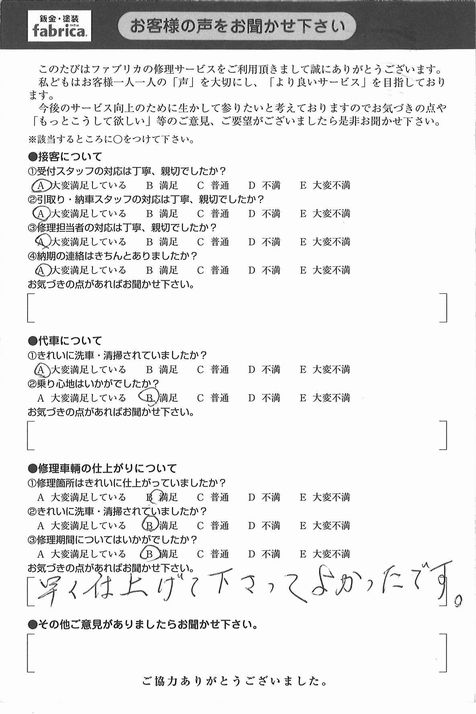 鈑金・塗装
fabrica.
お客様の声をお聞かせ下さい
このたびはファブリカの修理サービスをご利用頂きまして誠にありがとうございます。
私どもはお客様一人一人の「声」を大切にし、「より良いサービス」を目指しており
ます。
今後のサービス向上のために生かして参りたいと考えておりますのでお気づきの点や
「もっとこうして欲しい」等のご意見、ご要望がございましたら是非お聞かせ下さい。
※該当するところに○をつけて下さい。
●接客について
①受付スタッフの対応は丁寧、親切でしたか？
A 大変満足している B 満足 C 普通 D 不満 E 大変不満
②引取り・納車スタッフの対応は丁寧、親切でしたか？
A 大変満足している B 満足 C 普通 D 不満 E 大変不満
③修理担当者の対応は丁寧、親切でしたか？
A 大変満足している B 満足 C 普通 D 不満 E 大変不満
④納期の連絡はきちんとありましたか？
A 大変満足している B 満足 C 普通 D 不満 E 大変不満
お気づきの点があればお聞かせ下さい。
●代車について
①きれいに洗車・清掃されていましたか？
A 大変満足している B 満足 C 普通 D 不満 E 大変不満
②乗り心地はいかがでしたか？
A 大変満足している B 満足 C 普通 D 不満 E 大変不満
お気づきの点があればお聞かせ下さい。
●修理車輛の仕上がりについて
①修理箇所はきれいに仕上がっていましたか？
A 大変満足している B 満足 C 普通 D 不満 E 大変不満
②きれいに洗車・清掃されていましたか？
A 大変満足している B 満足 C 普通 D 不満 E 大変不満
③修理期間についてはいかがでしたか？
A 大変満足している B 満足 C 普通 D 不満 E 大変不満
お気づきの点があればお聞かせ下さい。
早く仕上げて下さってよかったです。
●その他ご意見がありましたらお聞かせ下さい。
ご協力ありがとうございました。